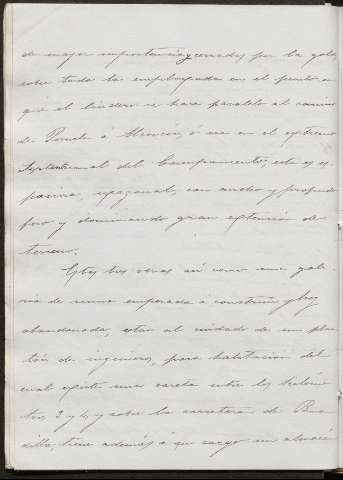 de mayor importancia y cerrados por la gola,
sobre todo la emplazada en el punto en
que el lindero se hace paralelo al camino
de Pozuelo á Alarcón, ó sea en el extremo
Septentrional del Campamento; esta es es-
paciosa, exagonal, con ancho y profundo
foso y dominando gran extensión de
terreno.
Estas tres obras así como una gale-
ría de minas empezada á construir y hoy
abandonada, están al cuidado de un pelo-
tón de ingenieros, para habitación del
cual existe una caseta entre los kilóme-
tros 2 y 4 y sobre la carretera de Boa-
dilla; tiene además á su cargo un almacén